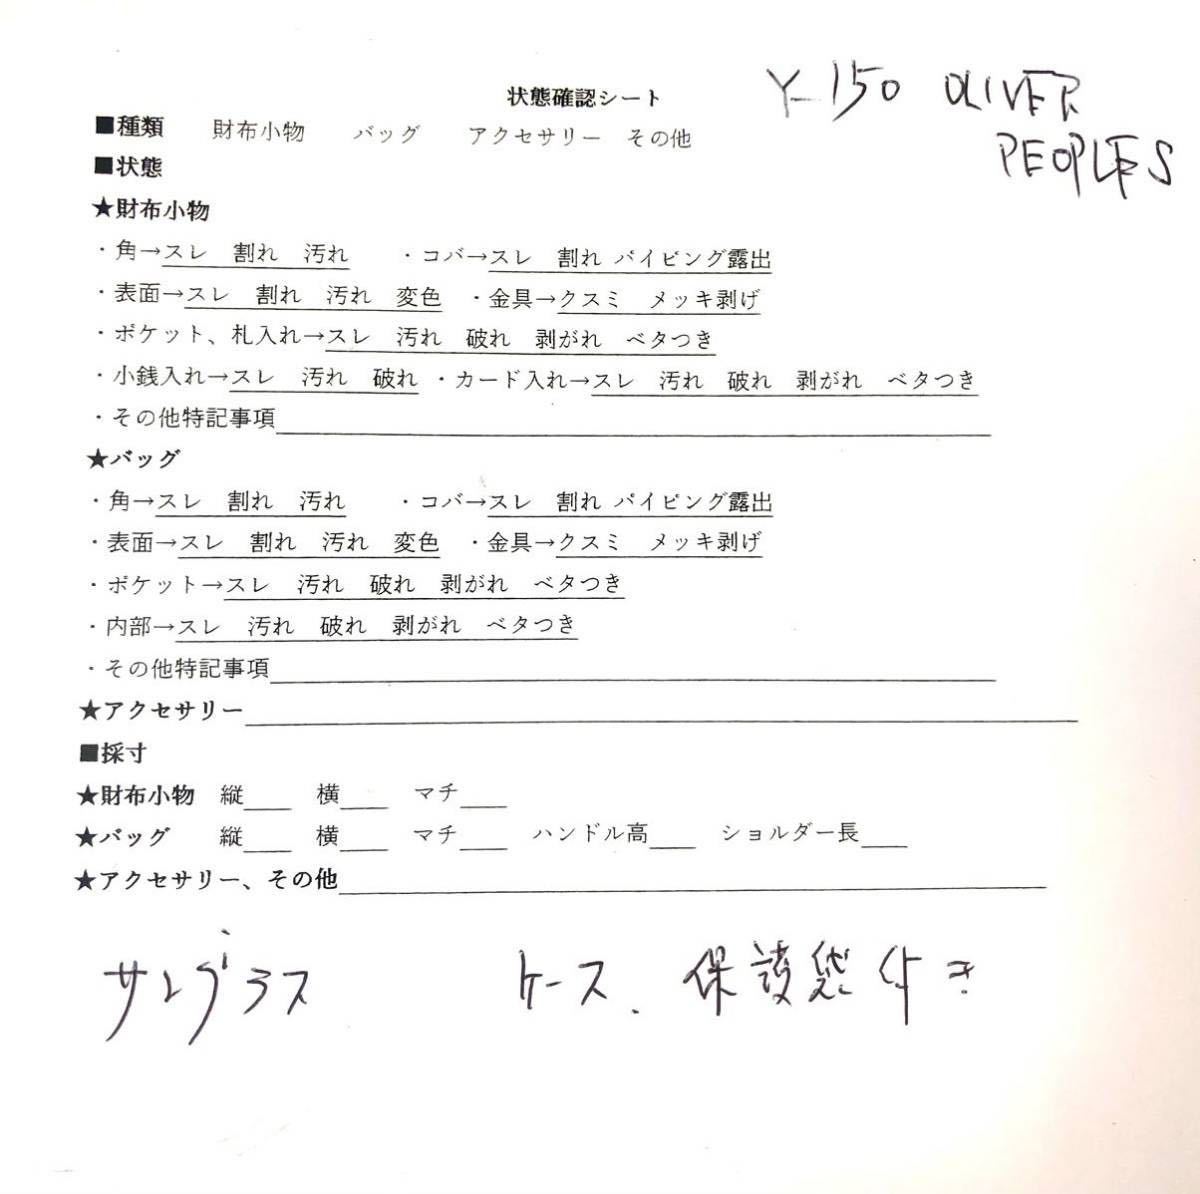 Y-150 OLIVER
PEOPLES
状態確認シート
■種類 財布小物 バッグ アクセサリー その他
■状態
★財布小物
・角→スレ 割れ 汚れ ・コバ→スレ 割れ パイピング露出
・表面→スレ 割れ 汚れ 変色 ・金具→クスミ メッキ剥げ
・ポケット、札入れ→スレ 汚れ 破れ 剥がれ ベタつき
・小銭入れ→スレ 汚れ 破れ ・カード入れ→スレ 汚れ 破れ 剥がれ ベタつき
・その他特記事項
★バッグ
・角→スレ 割れ 汚れ ・コバ→スレ 割れ パイピング露出
・表面→スレ 割れ 汚れ 変色 ・金具→クスミ メッキ剥げ
・ポケット→スレ 汚れ 破れ 剥がれ ベタつき
・内部→スレ 汚れ 破れ 剥がれ ベタつき
・その他特記事項
★アクセサリー
■採寸
★財布小物 縦 横 マチ
★バッグ 縦 横 マチ ハンドル高 ショルダー長
★アクセサリー、その他
サングラス ケース、保護袋付き